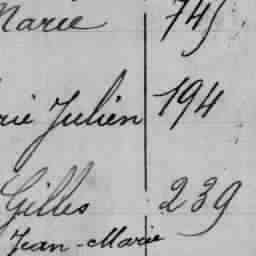 Marie 745
rie Julien 194
Gilles 239
Jean-Marie